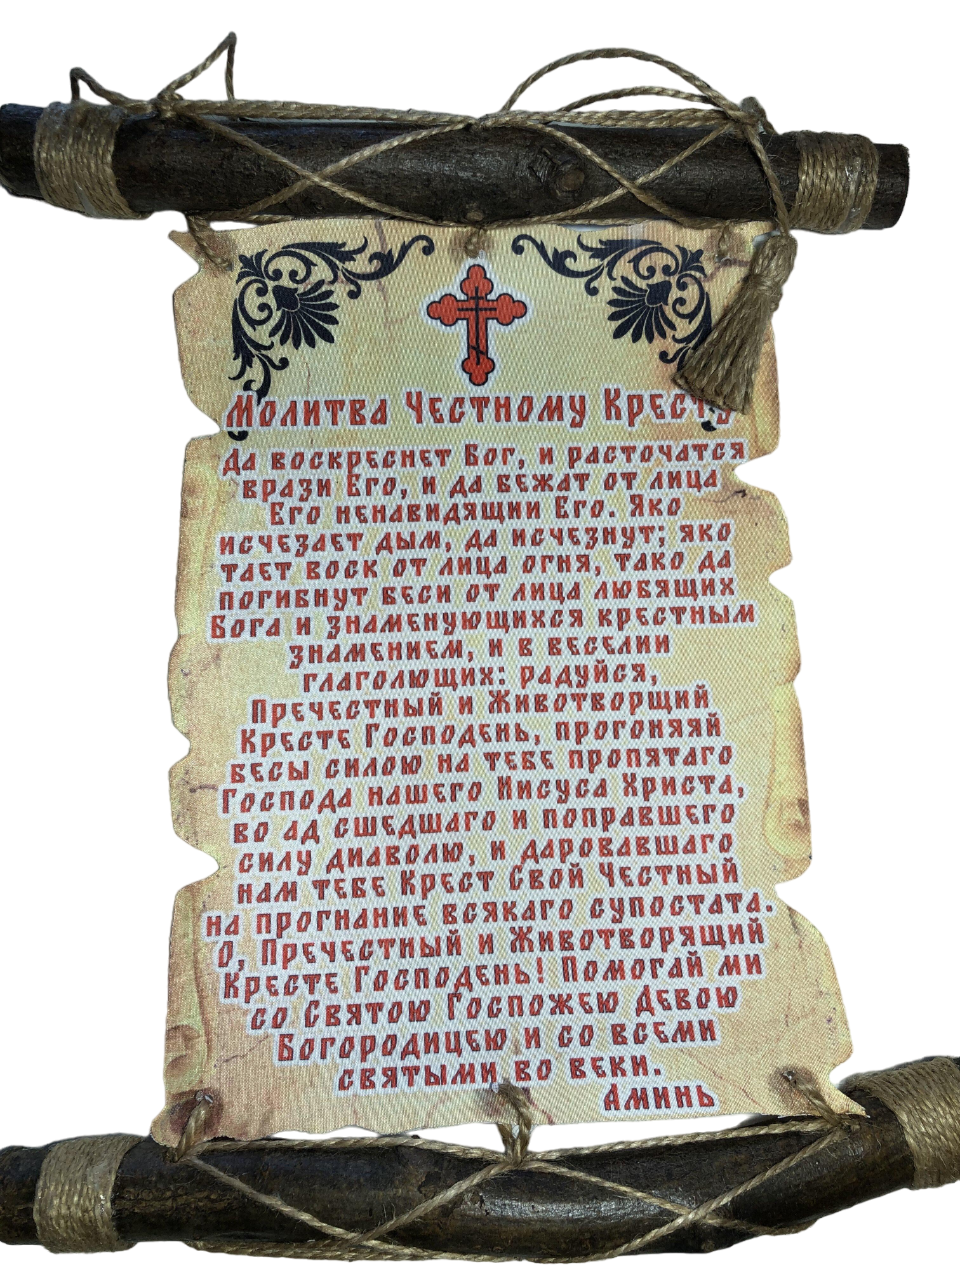 Молитва Честному Кресту
Да воскреснет Бог, и расточатся
врази Его, и да бежат от лица
Его ненавидящии Его. Яко
исчезает дым, да исчезнут; яко
тает воск от лица огня, тако да
погибнут беси от лица любящих
Бога и знаменующихся крестным
знамением, и в веселии
глаголющих: радуйся,
Пречестный и Животворщий
Кресте Господень, прогоняяй
бесы силою на тебе пропятаго
Господа нашего Иисуса Христа,
во ад сшедшаго и поправшего
силу диаволю, и даровавшаго
нам тебе Крест Свой Честный
на прогнание всякаго супостата.
О, Пречестный и Животворящий
Кресте Господень! Помогай ми
со Святою Госпожею Девою
Богородицею и со всеми
святыми во веки.
Аминь